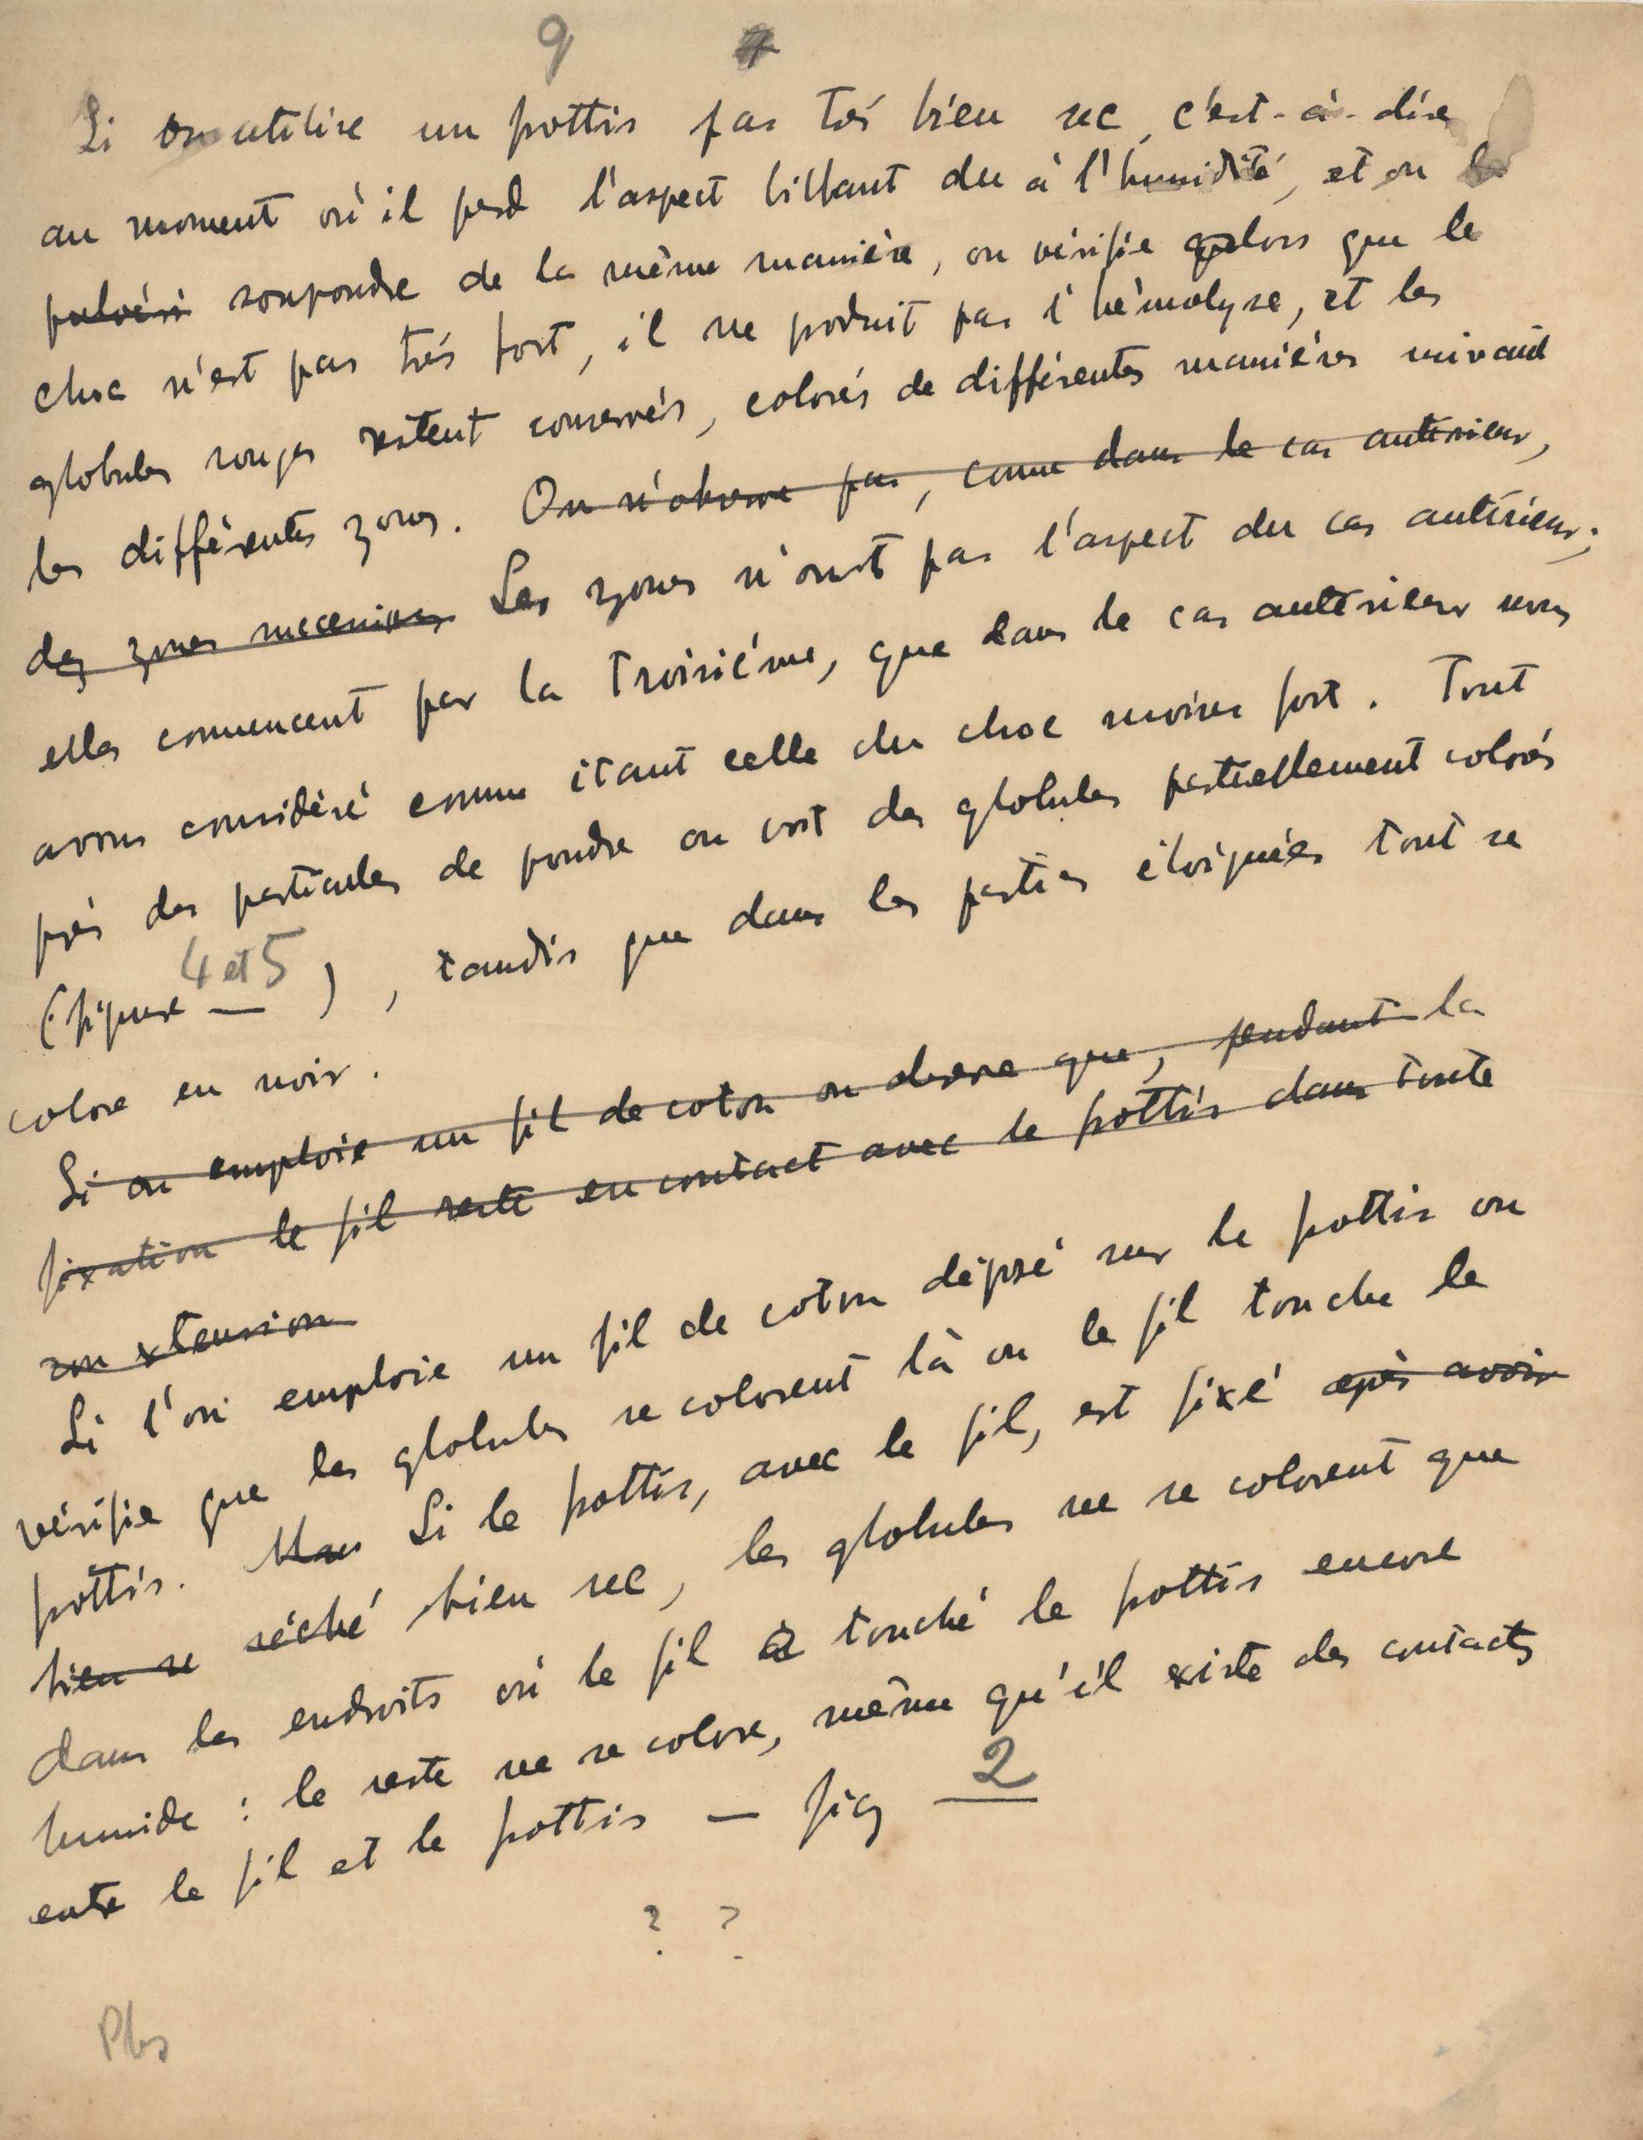 9
Si on utilise un frottis pas très bien sec, c'est-à-dire
au moment où il perd l'aspect brillant du à l'humidité, et on le
pulvéri soupoudre de la même manière, on vérifie alors que le
choc n'est pas très fort, il ne produit pas l'hémolyse, et les
globules rouges restent conservés, colorés de différentes manières suivant
les différentes zones. On n'observe pas, comme dans le cas antérieur,
des zones successives Les zones n'ont pas l'aspect du cas antérieur;
elles commencent par la troisiéme, que dans le cas antérieur nous
avons considéré comme étant celle du choc moins fort. Tout
près des particules de poudre on voit des globules partiellement colorés
(figure 4 et 5), tandis que dans les parties éloignées tout se
colore en noir.
Si on emploie un fil de coton on observe que, pendant la
fixation le fil reste en contact avec le frottis dans toute
son extension
Si l'on emploie un fil de coton déposé sur le frottis on
vérifie que les globules se colorent là ou le fil touche le
frottis. Mais Si le frottis, avec le fil, est fixé après avoir
bien se séché bien sec, les globules ne se colorent que
dans les endroits où le fil a touché le frottis encore
humide : le reste ne se colore, même qu'il existe des contacts
entre le fil et le frottis — fig 2
? ?
Pbs